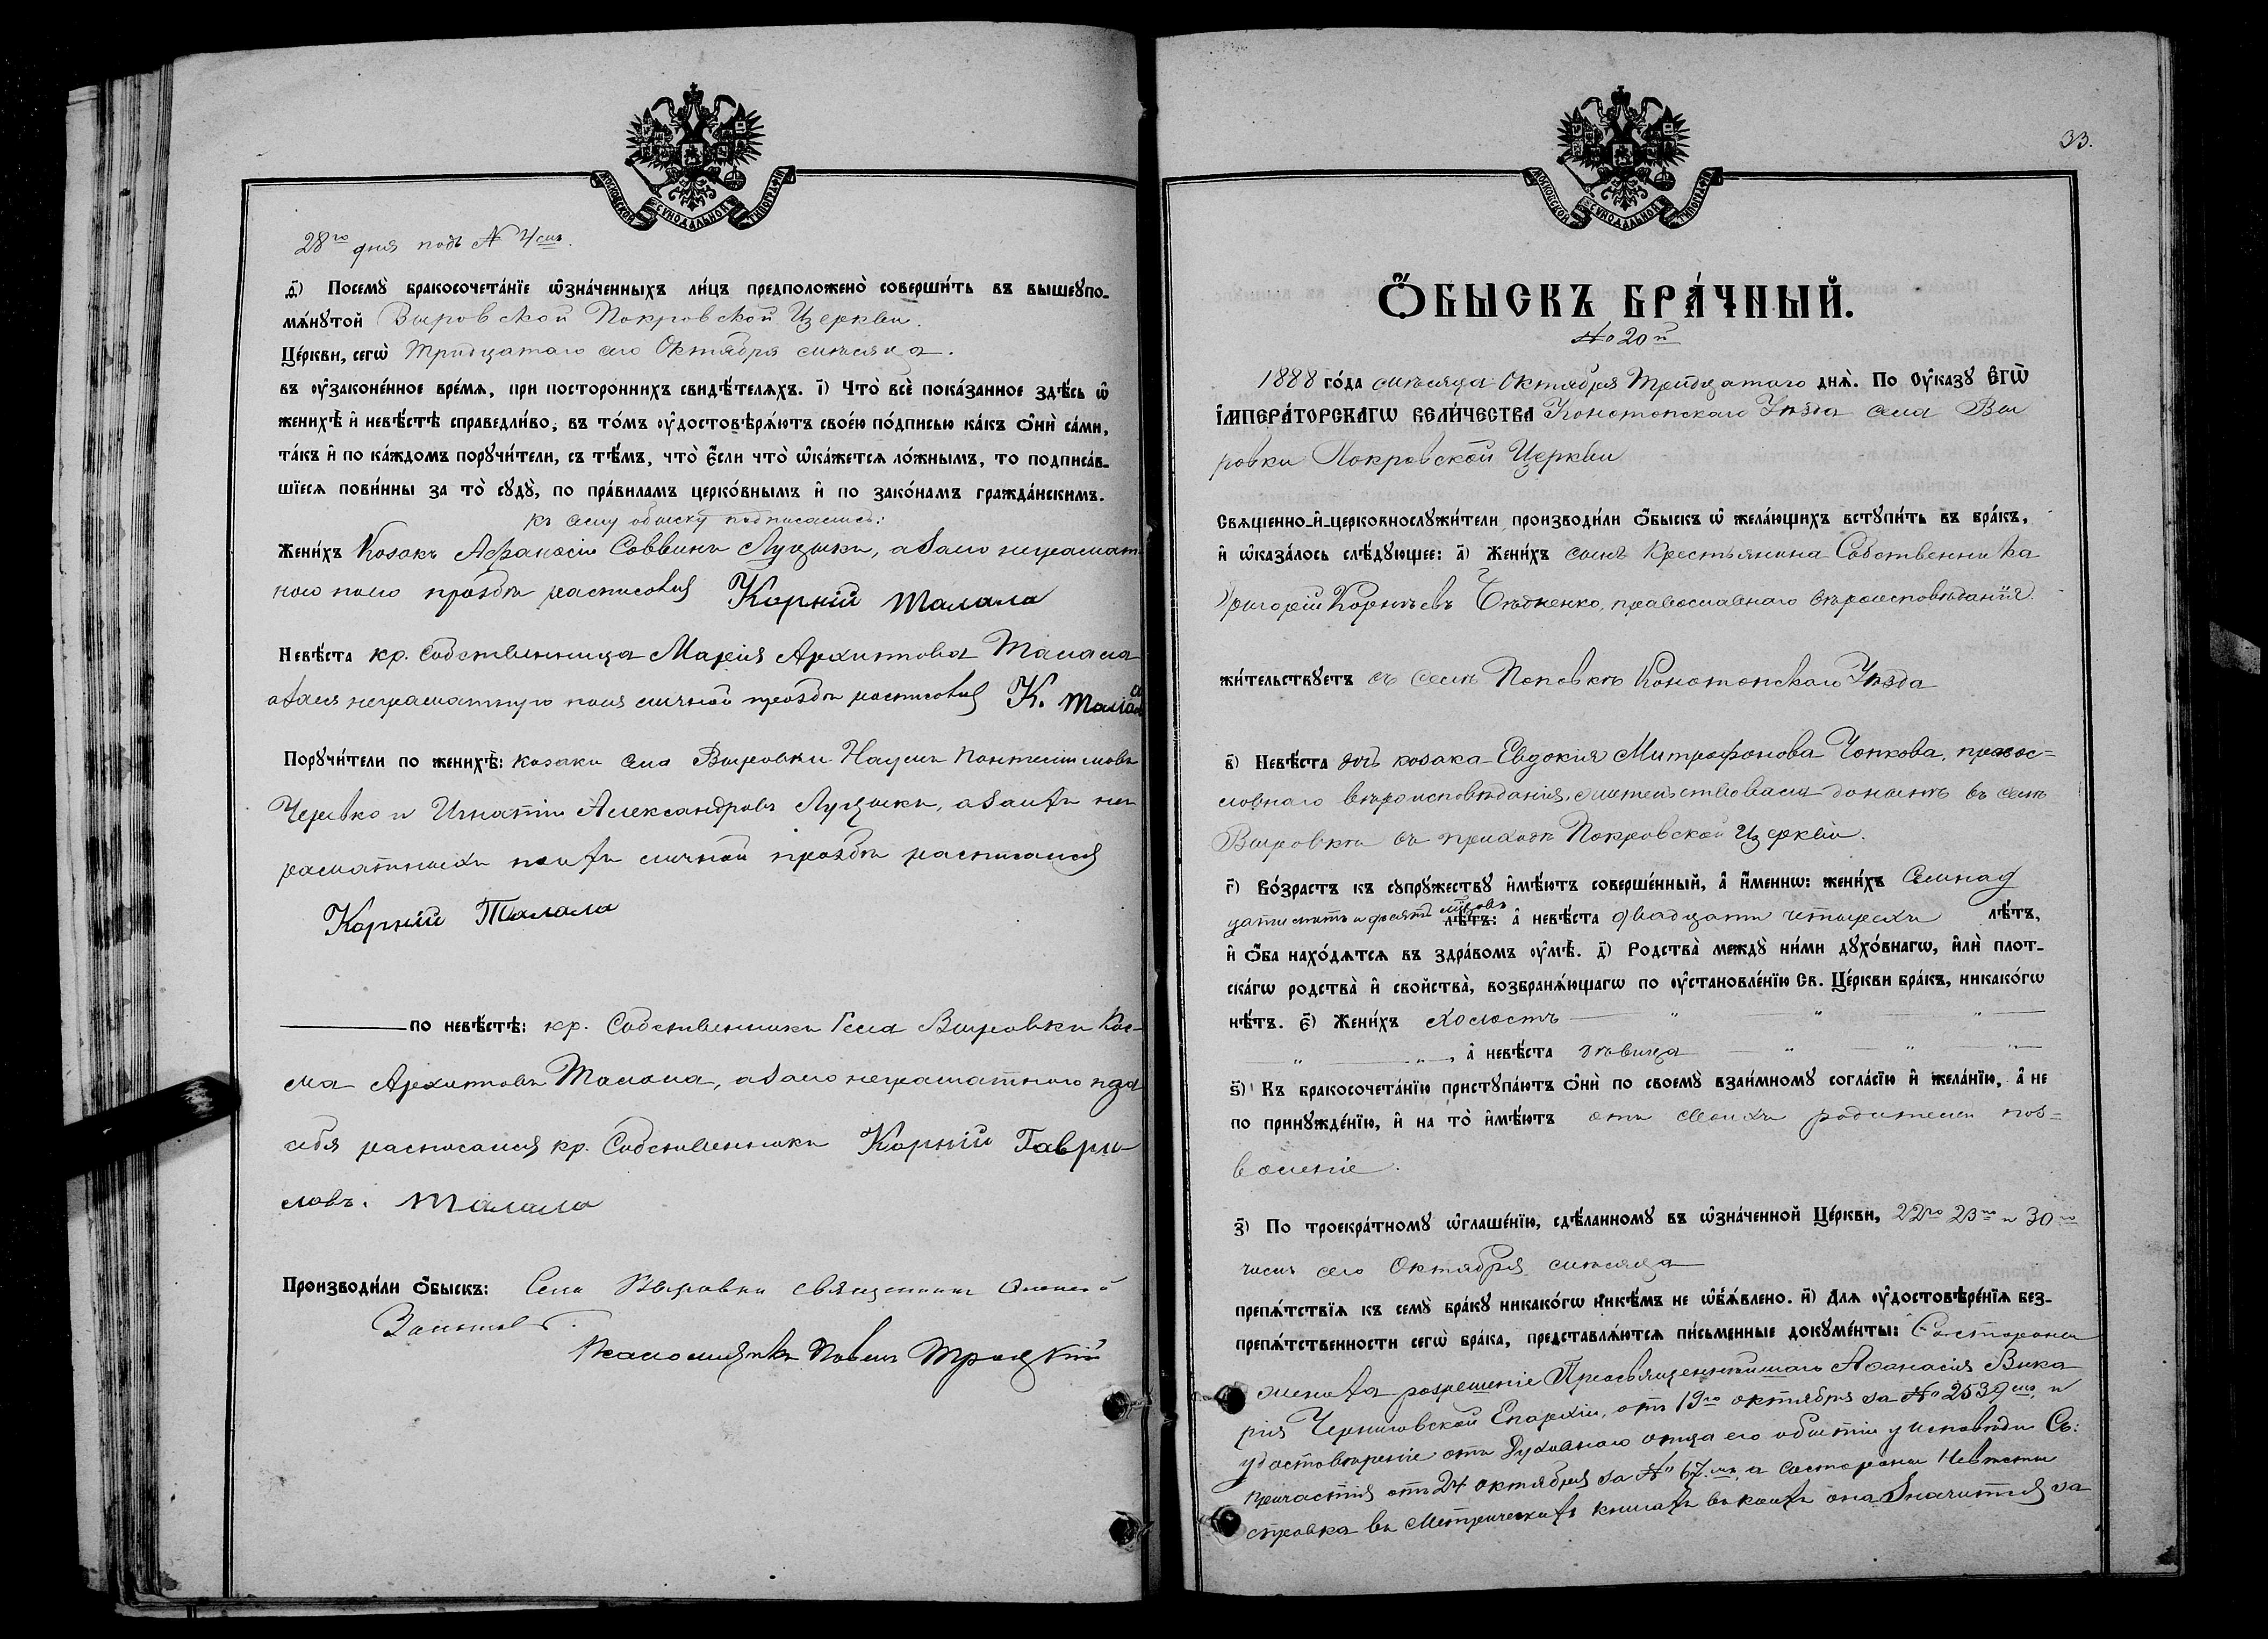 МОСКОВСКОЙ СѴНОДАЛЬНОЙ ТИПОГРАФІИ
28го дня подъ № 4мъ.
д҃) Посемꙋ̀ бракосочета́нїе ѡ҆зна́ченныхъ ли́цъ предположено̀ соверши́ть въ вышеꙋпо-
мѧ́нꙋтой Выровской Покровской Церкви.
Це́ркви, сегѡ̀ тридцатаго сего Октября мѣсяца.
въ ᲂу҆законе́нное вре́мѧ, при посторо́ннихъ свидѣ́телѧхъ. і҃) Что̀ всѐ пока́занное здѣ́сь ѡ҆
женихѣ̀ и҆ невѣ́стѣ справедли́во, въ то́мъ ᲂу҆достовѣрѧ́ютъ свое́ю по́дписью ка́къ ѻ҆нѝ са́ми,
та́къ и҆ по ка́ждомъ порꙋчи́тели, съ тѣ́мъ, что̀ є҆́сли что̀ ѡ҆ка́жетсѧ ло́жнымъ, то подписа́в-
шїесѧ пови́нны за то̀ сꙋдꙋ̀, по пра́виламъ церко́внымъ и҆ по зако́намъ гражда́нскимъ.
къ сему обыску подписались:
Жени́хъ Козакъ Афанасій Саввинъ Луцыкъ, а за него неграмат-
ного по его прозбѣ расписовся Корній Талала
Невѣ́ста кр. Собственница Марія Архипова Талала
а за нея неграматную по ея личной прозбѣ расписовся К. Талала
Порꙋчи́тели по женихѣ̀: козаки села Выровки Наумъ Пантелимоновъ
Черевко и Игнатій Александровъ Луцыкъ, а за ихъ не
граматныхъ по ихъ личной прозбѣ расписался
Корній Талала
по невѣ́стѣ: кр. Собственники села Выровки Кос-
ма Архиповъ Талала, а за его неграматного и за
себя расписался кр. Собственникъ Корній Гаври
ловъ. Талала
Производи́ли ѻ҆́быскъ: Села Выровки священникъ Алексѣй
Псаломщикъ Павелъ Троцкій
33.
МОСКОВСКОЙ СѴНОДАЛЬНОЙ ТИПОГРАФІИ
Ѻ҆́БЫСКЪ БРА́ЧНЫЙ.
№ 20й
1888 го́да мѣсяца Октября тридцатаго днѧ̀. По Оу҆ка́зꙋ Є҆ГѠ̀
І҆МПЕРА́ТОРСКАГѠ ВЕЛИ́ЧЕСТВА Конотопскаго Уѣзда села Вы
ровки Покровской Церкви
Свѧще́нно-и҆-церковнослꙋжи́тели производи́ли ѻ҆́быскъ ѡ҆ жела́ющихъ встꙋпи́ть въ бра́къ,
и҆ ѡ҆каза́лось слѣ́дꙋющее: а҃) Жени́хъ сынъ Крестьянина Собственника
Григорій Корнѣевъ Бѣдненко, православнаго вѣроисповѣданія.
жи́тельствꙋетъ въ селѣ Поповкѣ Конотопскаго Уѣзда
в҃) Невѣ́ста дочь козака Евдокія Митрофанова Чопкова, право-
славнаго вѣроисповѣданія, жительствовала донынѣ въ селѣ
Выровкѣ въ приходѣ Покровской Церкви.
г҃) Во́зрастъ къ сꙋпрꙋ́жествꙋ и҆мѣ́ютъ соверше́нный, а҆ и҆́меннѡ: жени́хъ семнад
цати лѣтъ и десять мѣсяцовъ лѣ́тъ: а҆ невѣ́ста двадцати четырехъ лѣ́тъ,
и҆ ѻ҆́ба нахо́дѧтсѧ въ здра́вомъ ᲂу҆мѣ̀. д҃) Родства̀ междꙋ̀ ни́ми дꙋхо́внагѡ, и҆лѝ плот-
ска́гѡ родства̀ и҆ сво́йства, возбранѧ́ющагѡ по ᲂу҆становле́нїю Св. Це́ркви бра́къ, никако́гѡ
нѣ́тъ. є҃) Жени́хъ холостъ — „ „ „ —
„ — „ —, а҆ невѣ́ста дѣвица — „ — „ — „ —
ѕ҃) Къ бракосочета́нїю пристꙋпа́ютъ ѻ҆нѝ по своемꙋ̀ взаи́мномꙋ согла́сїю и҆ жела́нїю, а҆ не
по принꙋжде́нїю, и҆ на то̀ и҆мѣ́ютъ отъ своихъ родителей поз-
воленіе.
з҃) По троекра́тномꙋ ѡ҆глаше́нїю, сдѣ́ланномꙋ въ ѡ҆зна́ченной Це́ркви, 22го 23го и 30го
числъ сего Октября мѣсяца
препѧ́тствїѧ къ семꙋ̀ бра́кꙋ никако́гѡ никѣ́мъ не ѡ҆бъѧ́влено. и҃) Длѧ ᲂу҆достовѣре́нїѧ без-
препѧ́тственности сегѡ̀ бра́ка, представлѧ́ютсѧ пи́сьменные докꙋме́нты: Со стороны
жениха разрешеніе Преосвященнѣйшаго Афанасія Вика
рія Черниговской Епархіи, отъ 19го октября за № 2539мъ, и
удостовѣреніе отъ Духовнаго отца его о бытіи у исповѣди Св:
Причастія отъ 24 октября за № 67.мъ, а со стороны Невѣсты
справка въ Метрическихъ книгахъ въ коихъ она значится за